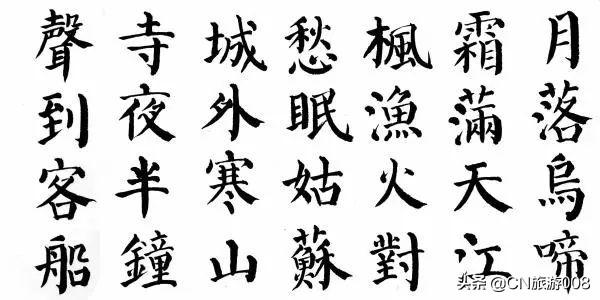 月落烏啼
霜滿天江
楓漁火對
愁眠姑蘇
城外寒山
寺夜半鐘
聲到客船
头条 @CN旅游008